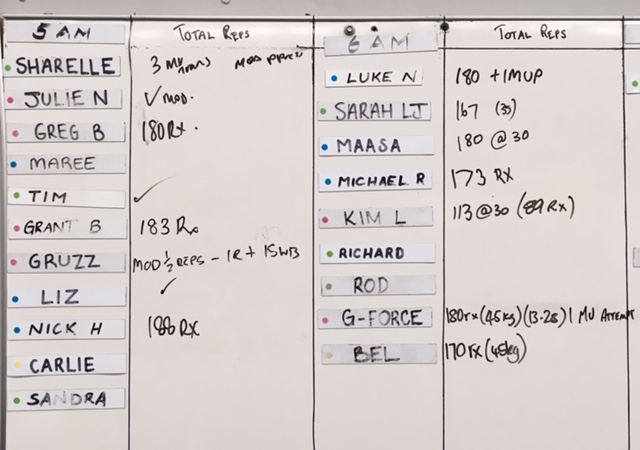 5 AM TOTAL REPS
SHARELLE 3 MU
JULIE N ✓ MOD.
GREG B 180 Rx.
MAREE
TIM ✓
GRANT B 183 Rx
GRUZZ MOD ½ REPS - 1R + 15WB
LIZ ✓
NICK H 186 RX
CARLIE
SANDRA
6 AM TOTAL REPS
LUKE N 180 + 1MUP
SARAH LJ 167 (35)
MAASA 180 @ 30
MICHAEL R 173 RX
KIM L 113 @ 30 (89 RX)
RICHARD
ROD
G-FORCE 180rx (45kg) (13.28) 1 MU ATTEMPT
BEL 170 rx (45kg)